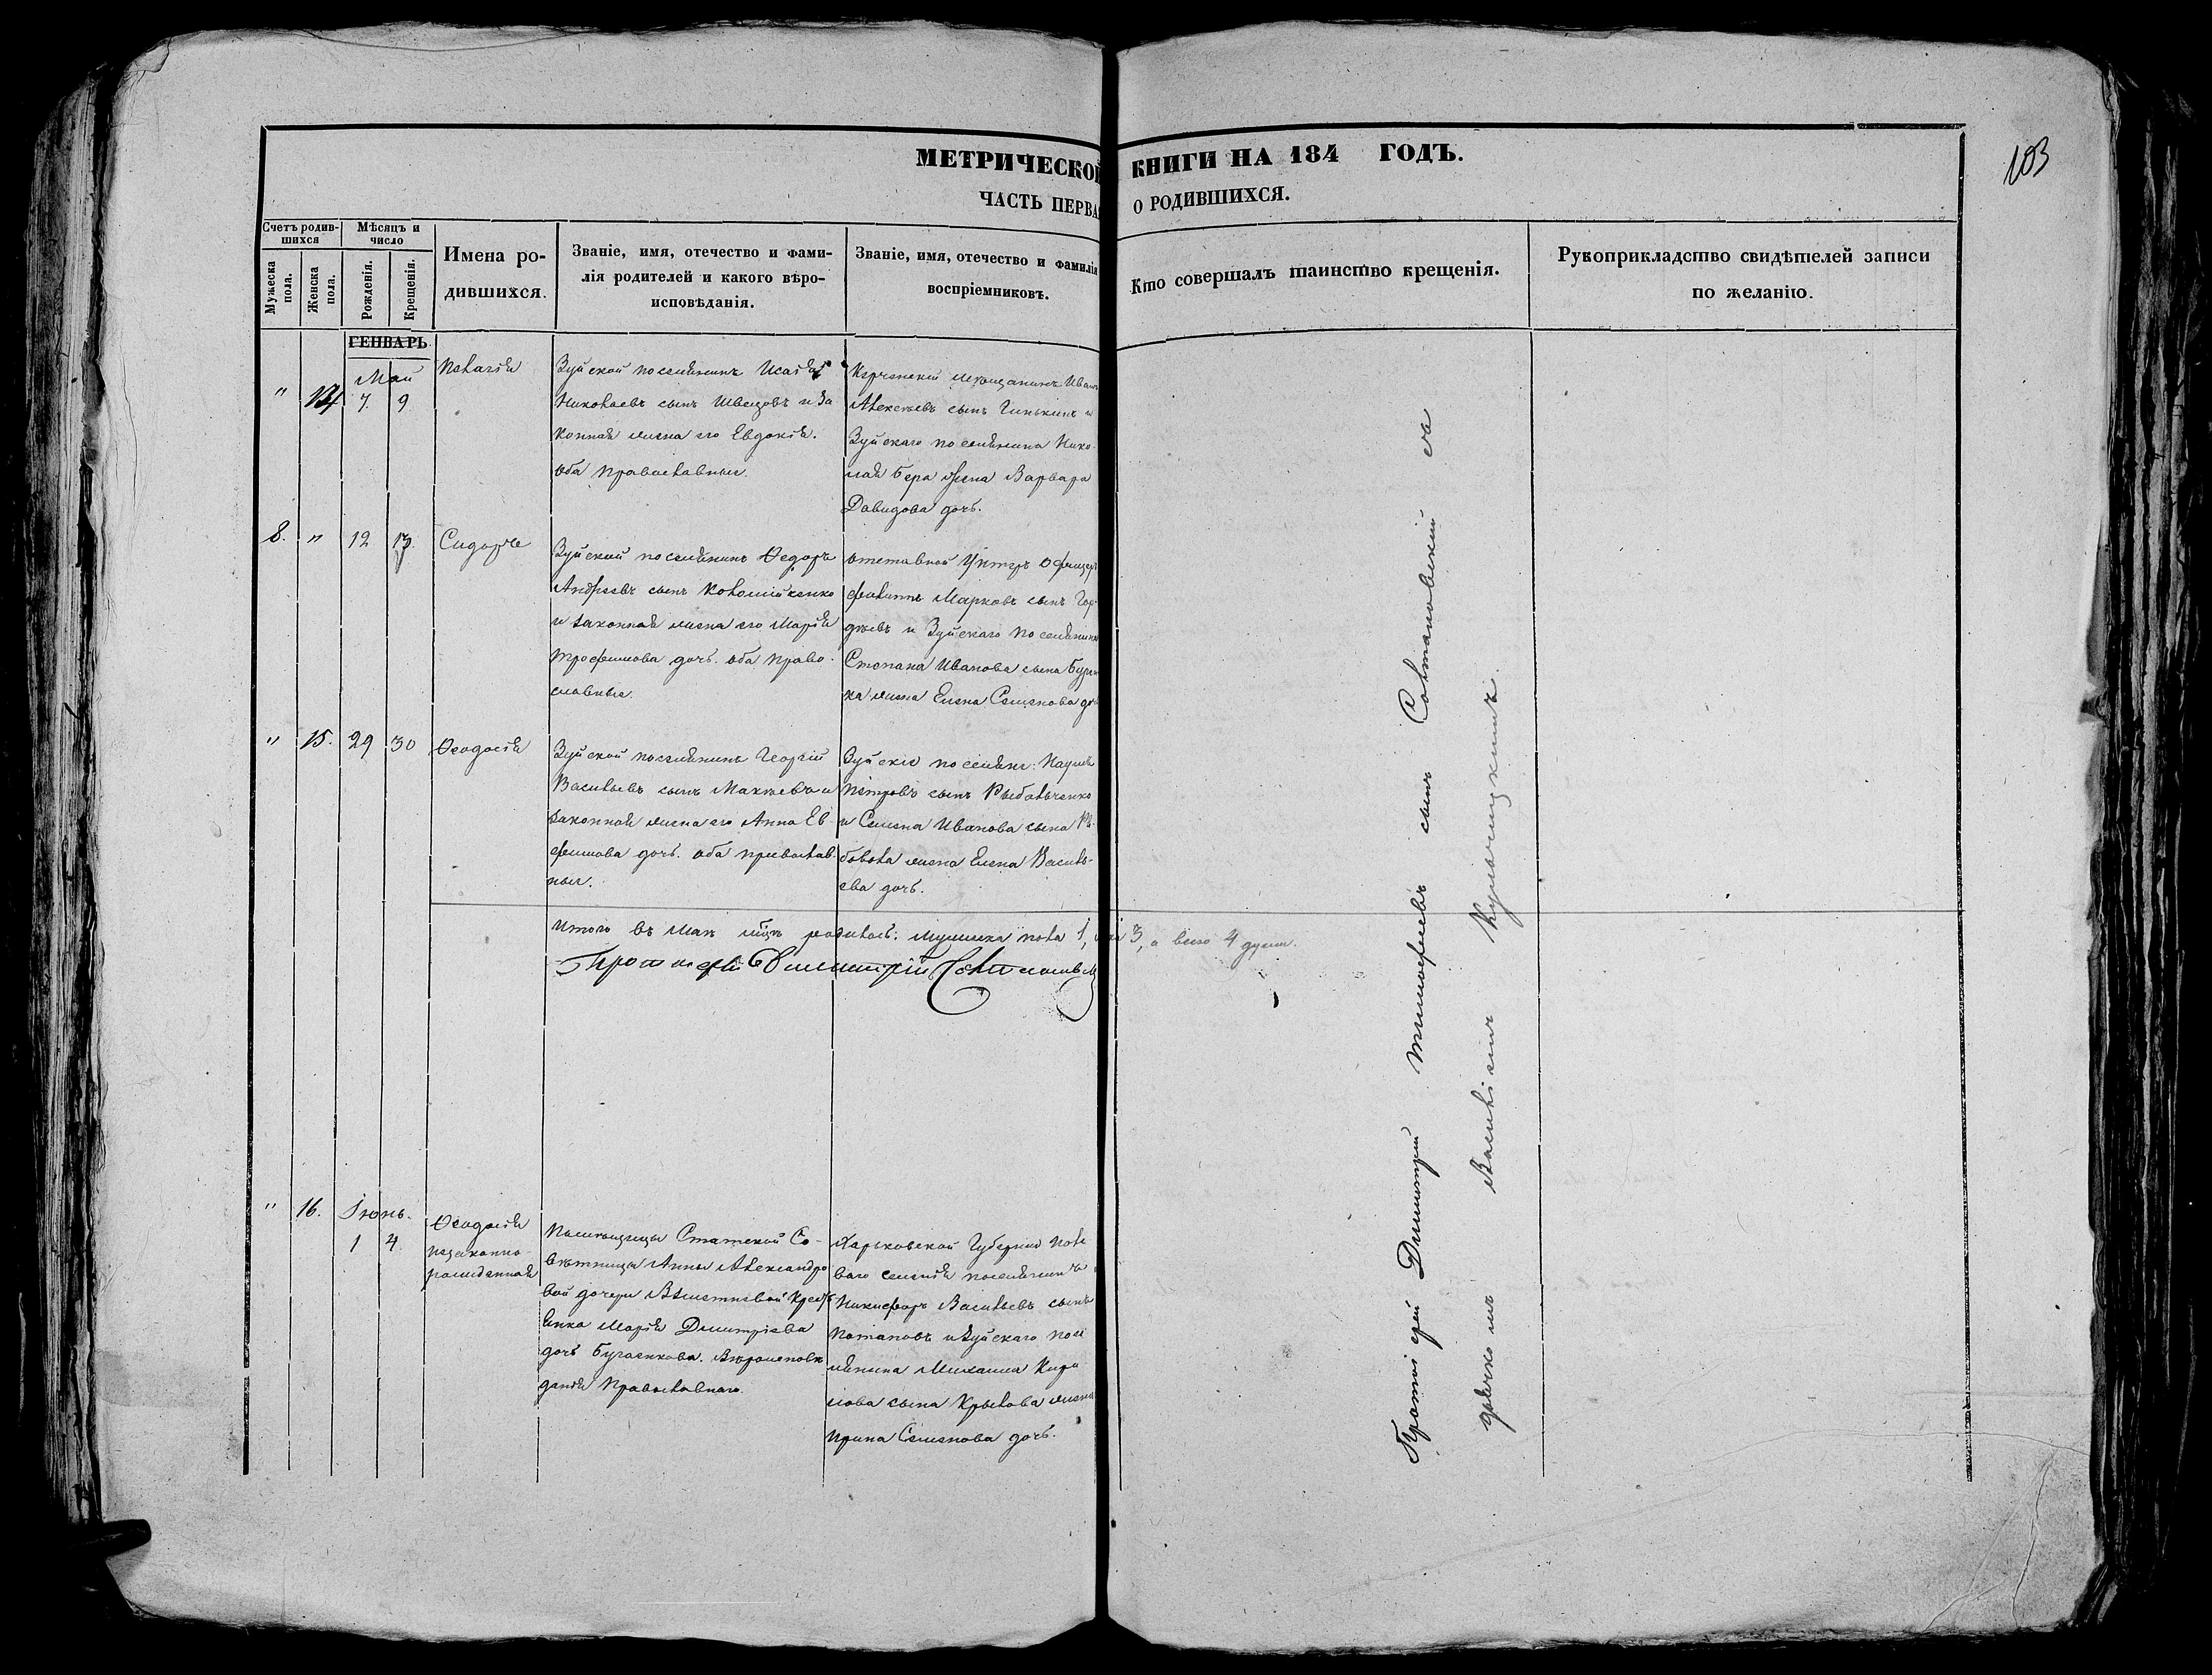 103
МЕТРИЧЕСКОЙ КНИГИ НА 184 ГОДЪ.
ЧАСТЬ ПЕРВАЯ О РОДИВШИХСЯ.
Счетъ родив-
шихся
Мужеска пола.
Женска пола.
Мѣсяцъ и
число
Рожденія.
Крещенія.
Имена ро-
дившихся.
Званіе, имя, отечество и фами-
лія родителей и какого вѣро-
исповѣданія.
Званіе, имя, отечество и фамилія
воспріемниковъ.
Кто совершалъ таинство крещенія.
Рукоприкладство свидѣтелей записи
по желанію.
ГЕНВАРЬ
Май
" 14 7. 9
Пелагія
Зуйской поселянинъ Исаія
Николаевъ сынъ Швецовъ и за
конная жена его Евдокія.
оба православные.
Керченскій мѣщанинъ Иванъ
Алексѣевъ сынъ и
Зуйскаго поселянина Нико-
лая Бера жена Варвара
Давидова дочь.
8. " 12 13.
Сидоръ
Зуйской поселянинъ Ѳедоръ
Андреевъ сынъ Коломійченко
и законная жена его Марія
Трофимова дочь. оба право-
славные.
отставной Унтеръ Офицеръ
Филиппъ Марковъ сынъ Гор-
дѣевъ и Зуйскаго поселянина
Степана Иванова сына
жена Елена Семенова дочь
" 15. 29 30
Ѳеодосія
Зуйской поселянинъ Георгій
Васильевъ сынъ Макѣевъ и
законная жена его Анна Ев-
фимова дочь. оба православ-
ные.
Зуйскіе поселяне: Наумъ
Петровъ сынъ Рыбальченко
и Семена Иванова сына Ря-
бовола жена Елена Василь-
ева дочь.
Итого въ Маѣ мцѣ родилось: мужеска пола 1, 3, а всего 4 души.
Протоіерей Димитрій Солтановскій
" 16. Іюнь.
1 4
Ѳеодосія
незаконно-
рожденная
Помѣщицы Статской Со-
вѣтницы Анны Александро
вой дочери крѣп
Марія Димитріева
дочь Бугаенкова. вѣроисповѣ
данія Православнаго.
Харьковской Губерніи
селенія поселянинъ
Никифоръ Васильевъ сынъ
Потаповъ и Зуйскаго посе
лянина Михаила Кири
лова сына Крылова жена
Ирина Семенова дочь.
Протоіерей Димитрій Тимофеевъ сынъ Солтановскій съ
дьячкомъ Василіемъ